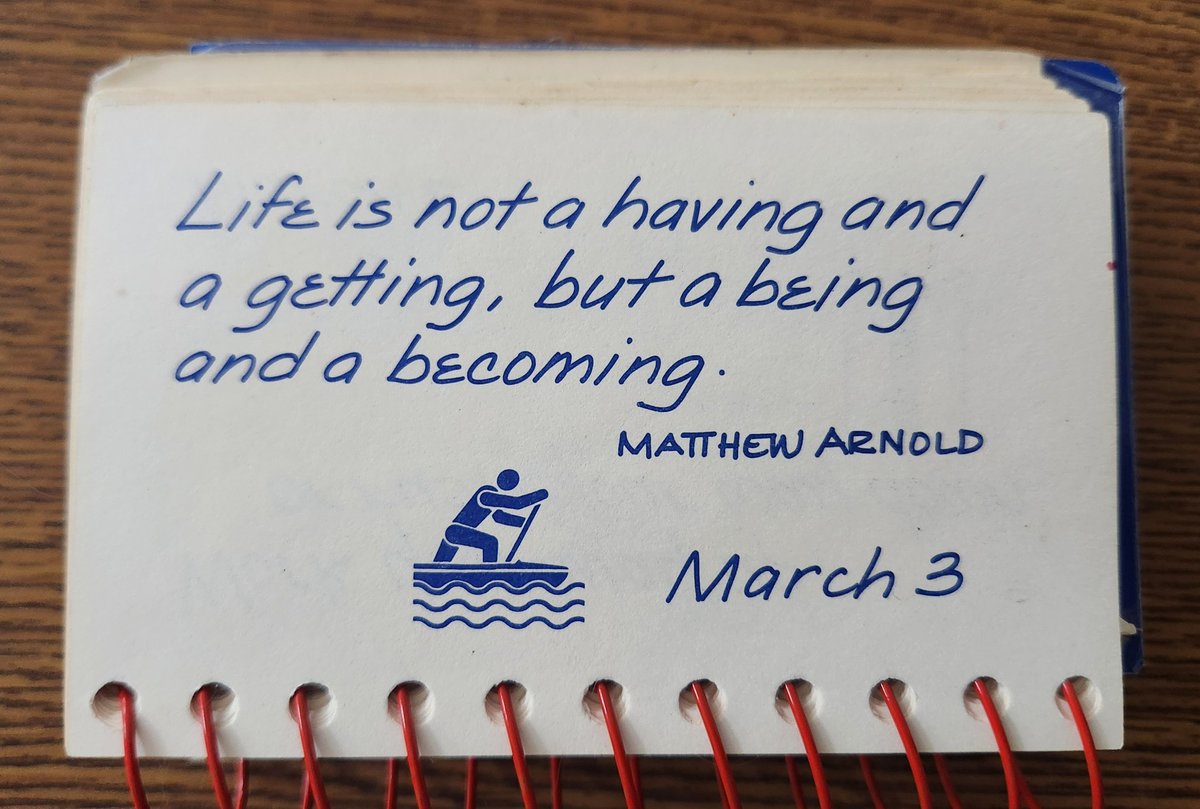 Life is not a having and
a getting, but a being
and a becoming.
MATTHEW ARNOLD
March 3